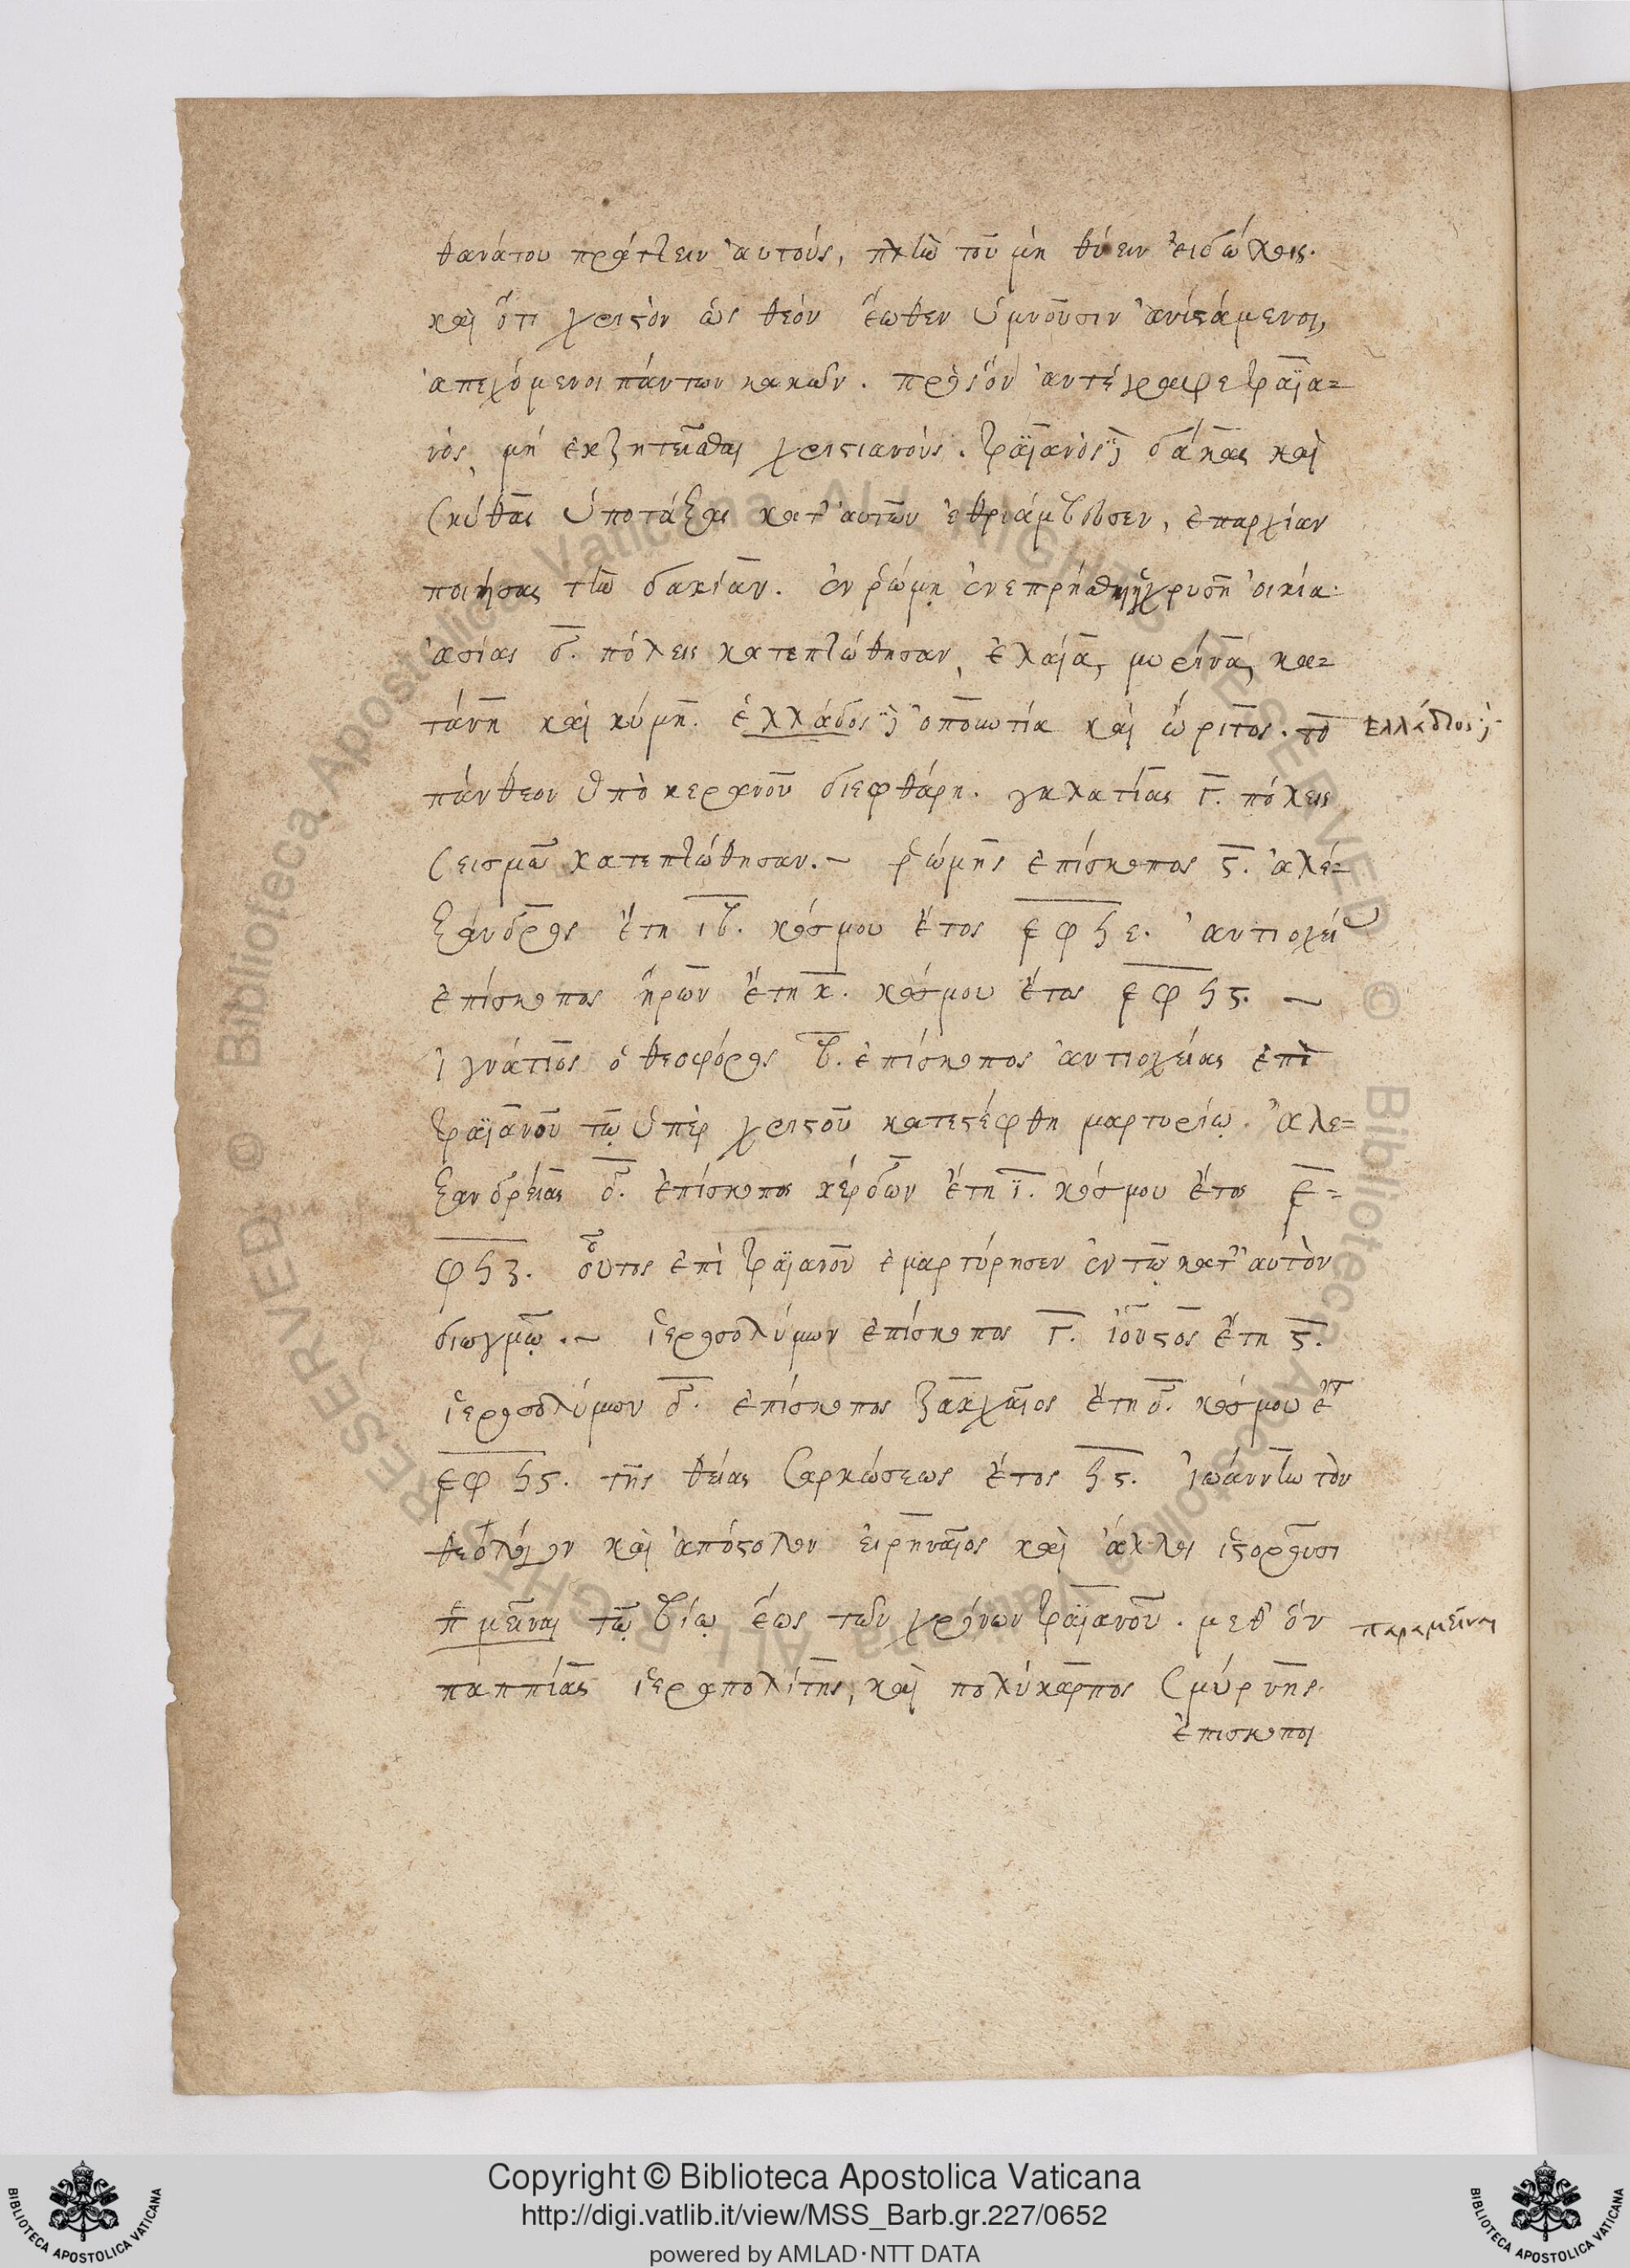 θανάτου πράττειν αὐτούς, πλὴν τοῦ μὴ θύειν εἰδώλοις.
καὶ ὅτι χριστὸν ὡς θεὸν ἕωθεν ὑμνοῦσιν ἀνιστάμενοι,
ἀπεχόμενοι πάντων κακῶν. πρὸς ὃν ἀντέγραψε τραϊα=
νὸς, μὴ ἐκζητεῖσθαι χριστιανούς. τραϊανὸς δάκας καὶ
σκύθας ὑποτάξας κατ' αὐτῶν ἐθριάμβευσεν, ἐπαρχίαν
ποιήσας τὴν δακίαν. ἐν ῥώμῃ ἐνεπρήσθη ἡ χρυσῆ οἰκία.
ἀσίας δ. πόλεις κατεπτώθησαν, ἐλαία, μυρίνα, κα=
τάνη καὶ κύμη. ἑλλάδος ὀποωτία καὶ ὤριτος. τὸ
ἑλλάδιος
πάνθεον ὑπὸ κεραυνοῦ διεφθάρη. γαλατίας γ. πόλεις
σεισμῷ κατεπτώθησαν.~ ῥώμης ἐπίσκοπος ς. ἀλέ=
ξανδρος ἔτη ιβ. κόσμου ἔτος ͵εφϟε. ἀντιοχεί
ἐπίσκοπος ἥρων ἔτη κ. κόσμου ἔτος ͵εφϟς. ~
ἰγνάτιος ὁ θεοφόρος β. ἐπίσκοπος ἀντιοχείας ἐπὶ
τραϊανοῦ τῷ ὑπὲρ χριστοῦ κατεστέφθη μαρτυρίῳ. ἀλε=
ξανδρείας δ. ἐπίσκοπος κέρδων ἔτη ϊ. κόσμου ἔτος ͵ε=
φϟζ. οὗτος ἐπὶ τραϊανοῦ ἐμαρτύρησεν ἐν τῷ κατ' αὐτὸν
διωγμῷ.~ ἱεροσολύμων ἐπίσκοπος γ. ἰοῦστος ἔτη ς.
ἱεροσολύμων δ. ἐπίσκοπος ζακχαῖος ἔτη δ. κόσμου ἔτ
͵εφϟς. τῆς θείας σαρκώσεως ἔτος ϟς. ἰωάννην τὸν
θεολόγον καὶ ἀπόστολον εἰρηναῖος καὶ ἄλλοι ἱστοροῦσι
π μεῖναι τῷ βίῳ ἕως τῶν χρόνων τραϊανοῦ. μεθ' ὃν
παραμεῖναι
παππίας ἱεραπολίτης, καὶ πολύκαρπος σμύρνης
ἐπίσκοποι
Copyright © Biblioteca Apostolica Vaticana
http://digi.vatlib.it/view/MSS_Barb.gr.227/0652
powered by AMLAD·NTT DATA